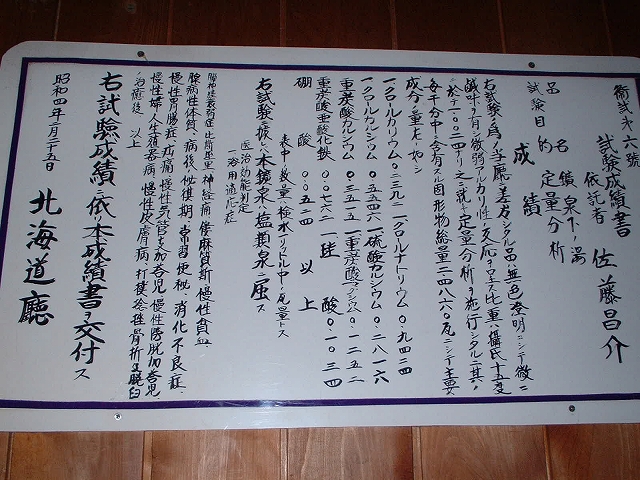 衛弐第六號
試験成績書
依託者 佐藤昌介
品名 鑛泉下ノ湯
試験目的 定量分析
成績
右試験ノ為メ当廳ニ差出シタル品ハ無色澄明ニシテ微ニ
鹹味ヲ有シ微弱アルカリ性ノ反応ヲ呈ス比重ハ攝氏十五度
ニ於テ一・〇〇三四ナリ之ニ就テ定量分析ヲ施行シタルニ其ノ
毎千分中ニ含有スル固形物総量二・四八六〇瓦ニシテ主要
成分ノ量左ノ如シ
一クロールカリウム 〇・二三九二 一クロールナトリウム 〇・九四二四
一クロールカルシウム 〇・五五四六 一硫酸カルシウム 〇・二八二六
重炭酸カルシウム 〇・三五二五 一重炭酸マグネシウム 〇・一二五二
重炭酸亜酸化鉄 〇・〇〇七六 一珪酸 〇・一〇三四
硼酸 〇・〇五二四 以上
表中ノ数量ハ検水一リットル中ノ瓦量トス
右試験ニ據レハ本鑛泉ハ塩類泉ニ属ス
医治効能判定
一浴用適応症
神経痛 僂麻質斯 慢性貧血
腺病性体質、病後ノ恢復期、常習便秘、消化不良症、
慢性胃腸症、疝痛、慢性気管支加答児、慢性膀胱加答児
慢性婦人生殖器病、慢性皮膚病、打撲、捻挫、骨折及脱臼
ノ治癒後 以上
右試験成績ニ依リ本成績書ヲ交付ス
昭和四年二月二十五日 北海道廳